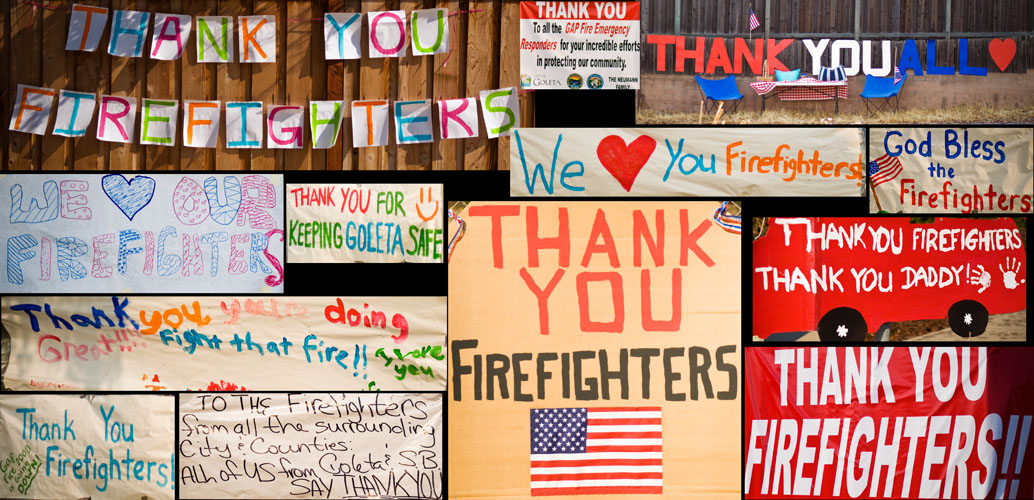 THANK YOU
FIREFIGHTERS
THANK YOU
To all the GAP Fire Emergency
Responders for your incredible efforts
in protecting our community.
CITY OF
GOLETA
THE NEUMANN
FAMILY
THANK YOU ALL
We ❤ You Firefighters!
God Bless
the
Firefighters
WE ♡ OUR
FIREFIGHTERS
THANK YOU FOR
KEEPING GOLETA SAFE
THANK
YOU
FIREFIGHTERS
THANK YOU FIREFIGHTERS
THANK YOU DADDY!
Thank you you're doing
Great!!! Fight that fire!!
Thank You
Firefighters!
TO THE Firefighters
from all the surrounding
City & Counties:
ALL of US from Goleta & S.B.
SAY THANKYOU
THANK YOU
FIREFIGHTERS!!